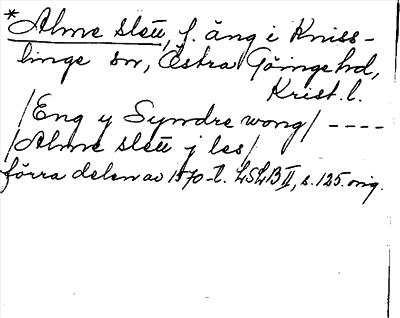 *Alme sleü, f. äng i Kniss-
linge sn, Östra Göinge hd,
Krist. l.
/Eng y Syndre wong/ ----
/Alme sleü j les/
förra delen av 1570-t. LSLB II, s. 125. orig.